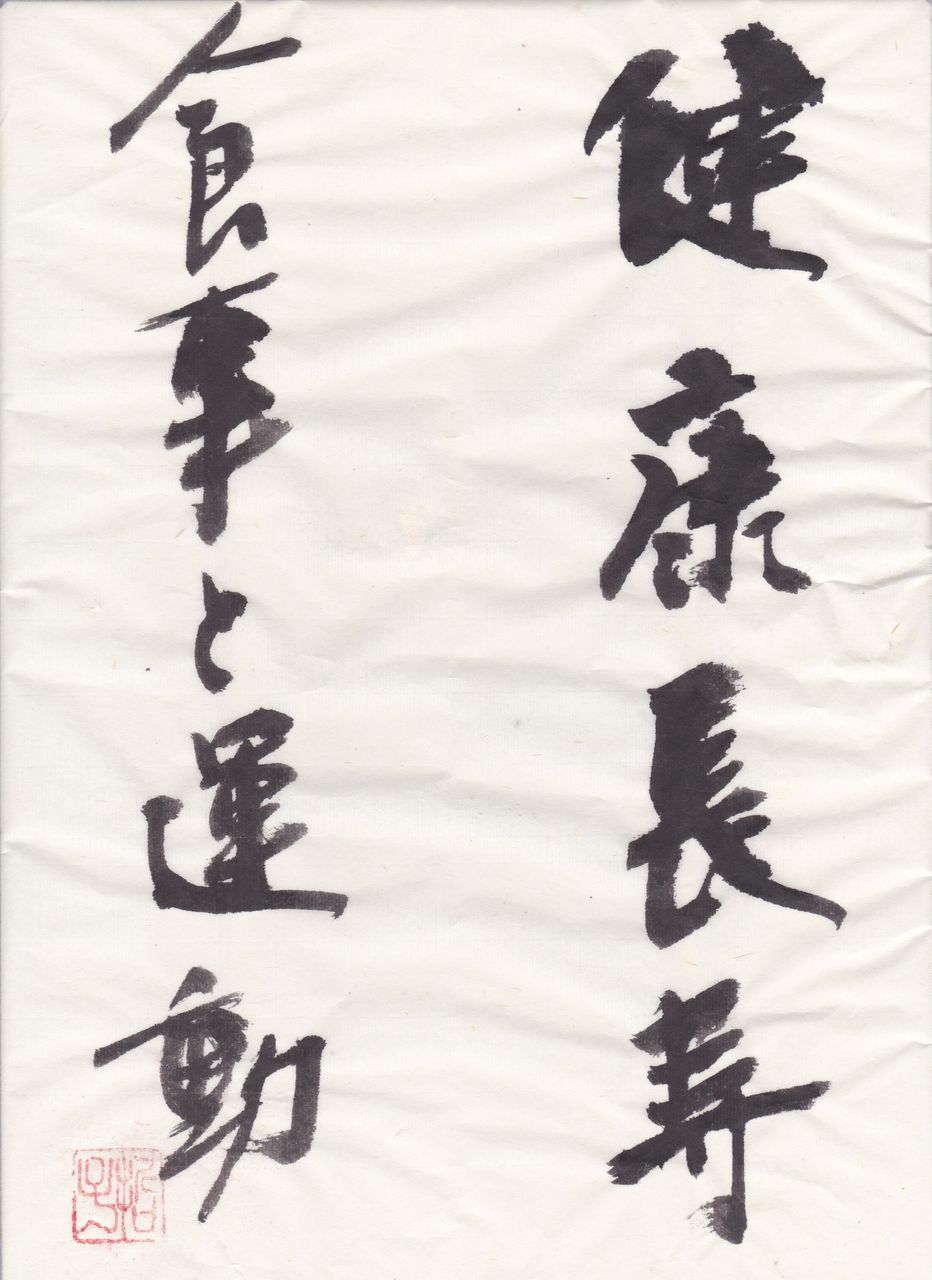 健康長寿
食事と運動